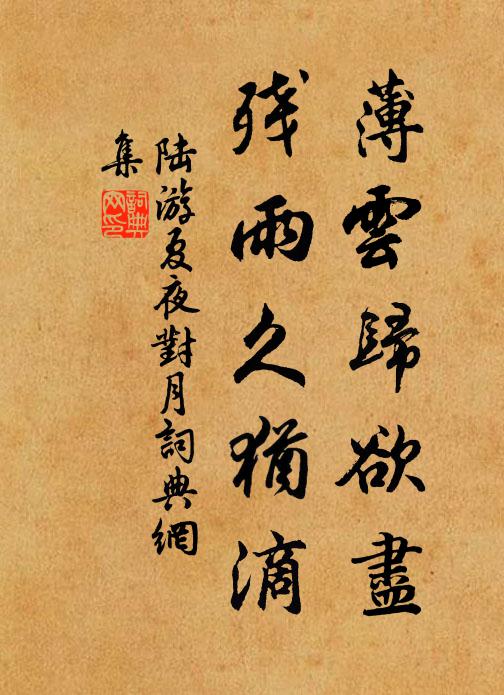 薄雲歸欲盡
残雨久猶滴
陆游夏夜對月詞典網
集
詞典
网印